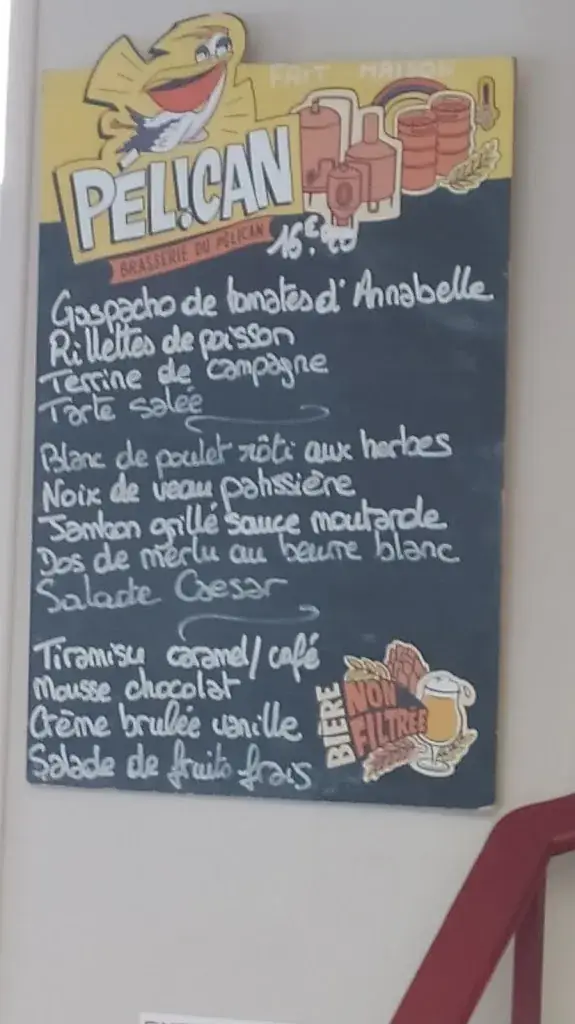 FAIT MAISON
PÉL!CAN
BRASSERIE DU PÉLICAN
Gaspacho de tomates d'Annabelle
Rillettes de poisson
Terrine de campagne
Tarte salée
Blanc de poulet rôti aux herbes
Noix de veau patissière
Jambon grillé sauce moutarde
Dos de merlu au beurre blanc
Salade Caesar
Tiramisu caramel/café
Mousse chocolat
Crème brulée vanille
Salade de fruits frais
BIÈRE
NON
FILTRÉE